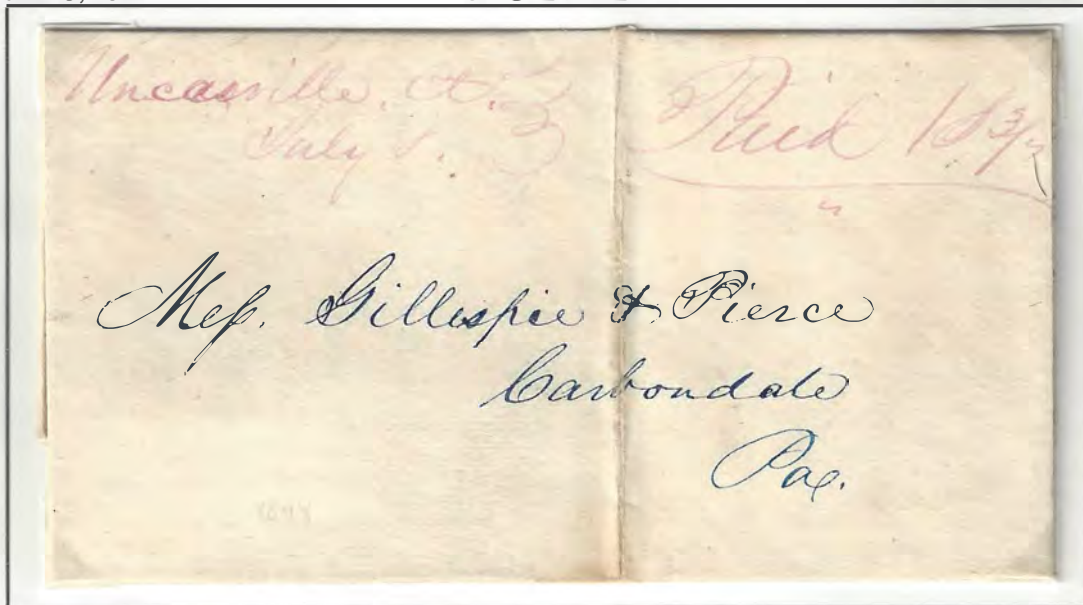 Uncasville. Ct.
July 1.
Paid 18 3/4
Mess. Gillespie & Pierce
Carbondale
Pa.